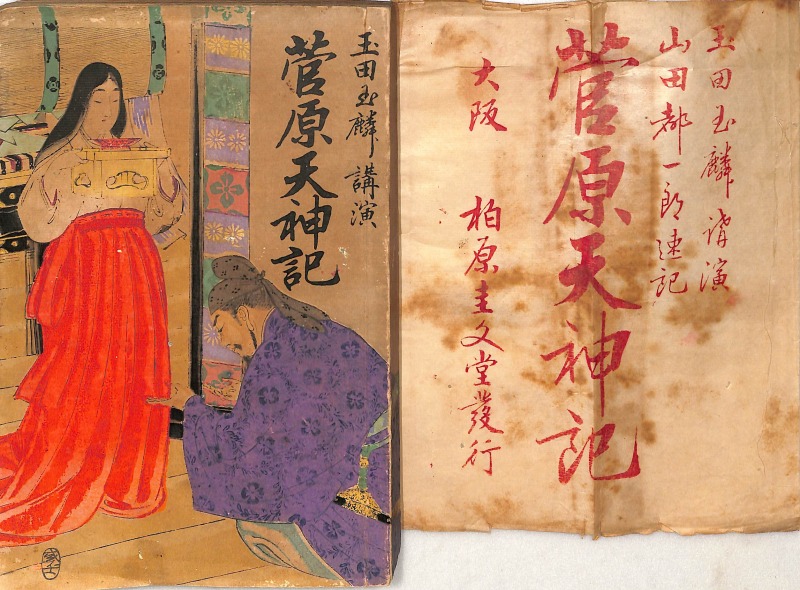 玉田玉麟講演
菅原天神記
玉田玉麟講演
山田都一郎速記
菅原天神記
大阪 柏原圭文堂發行